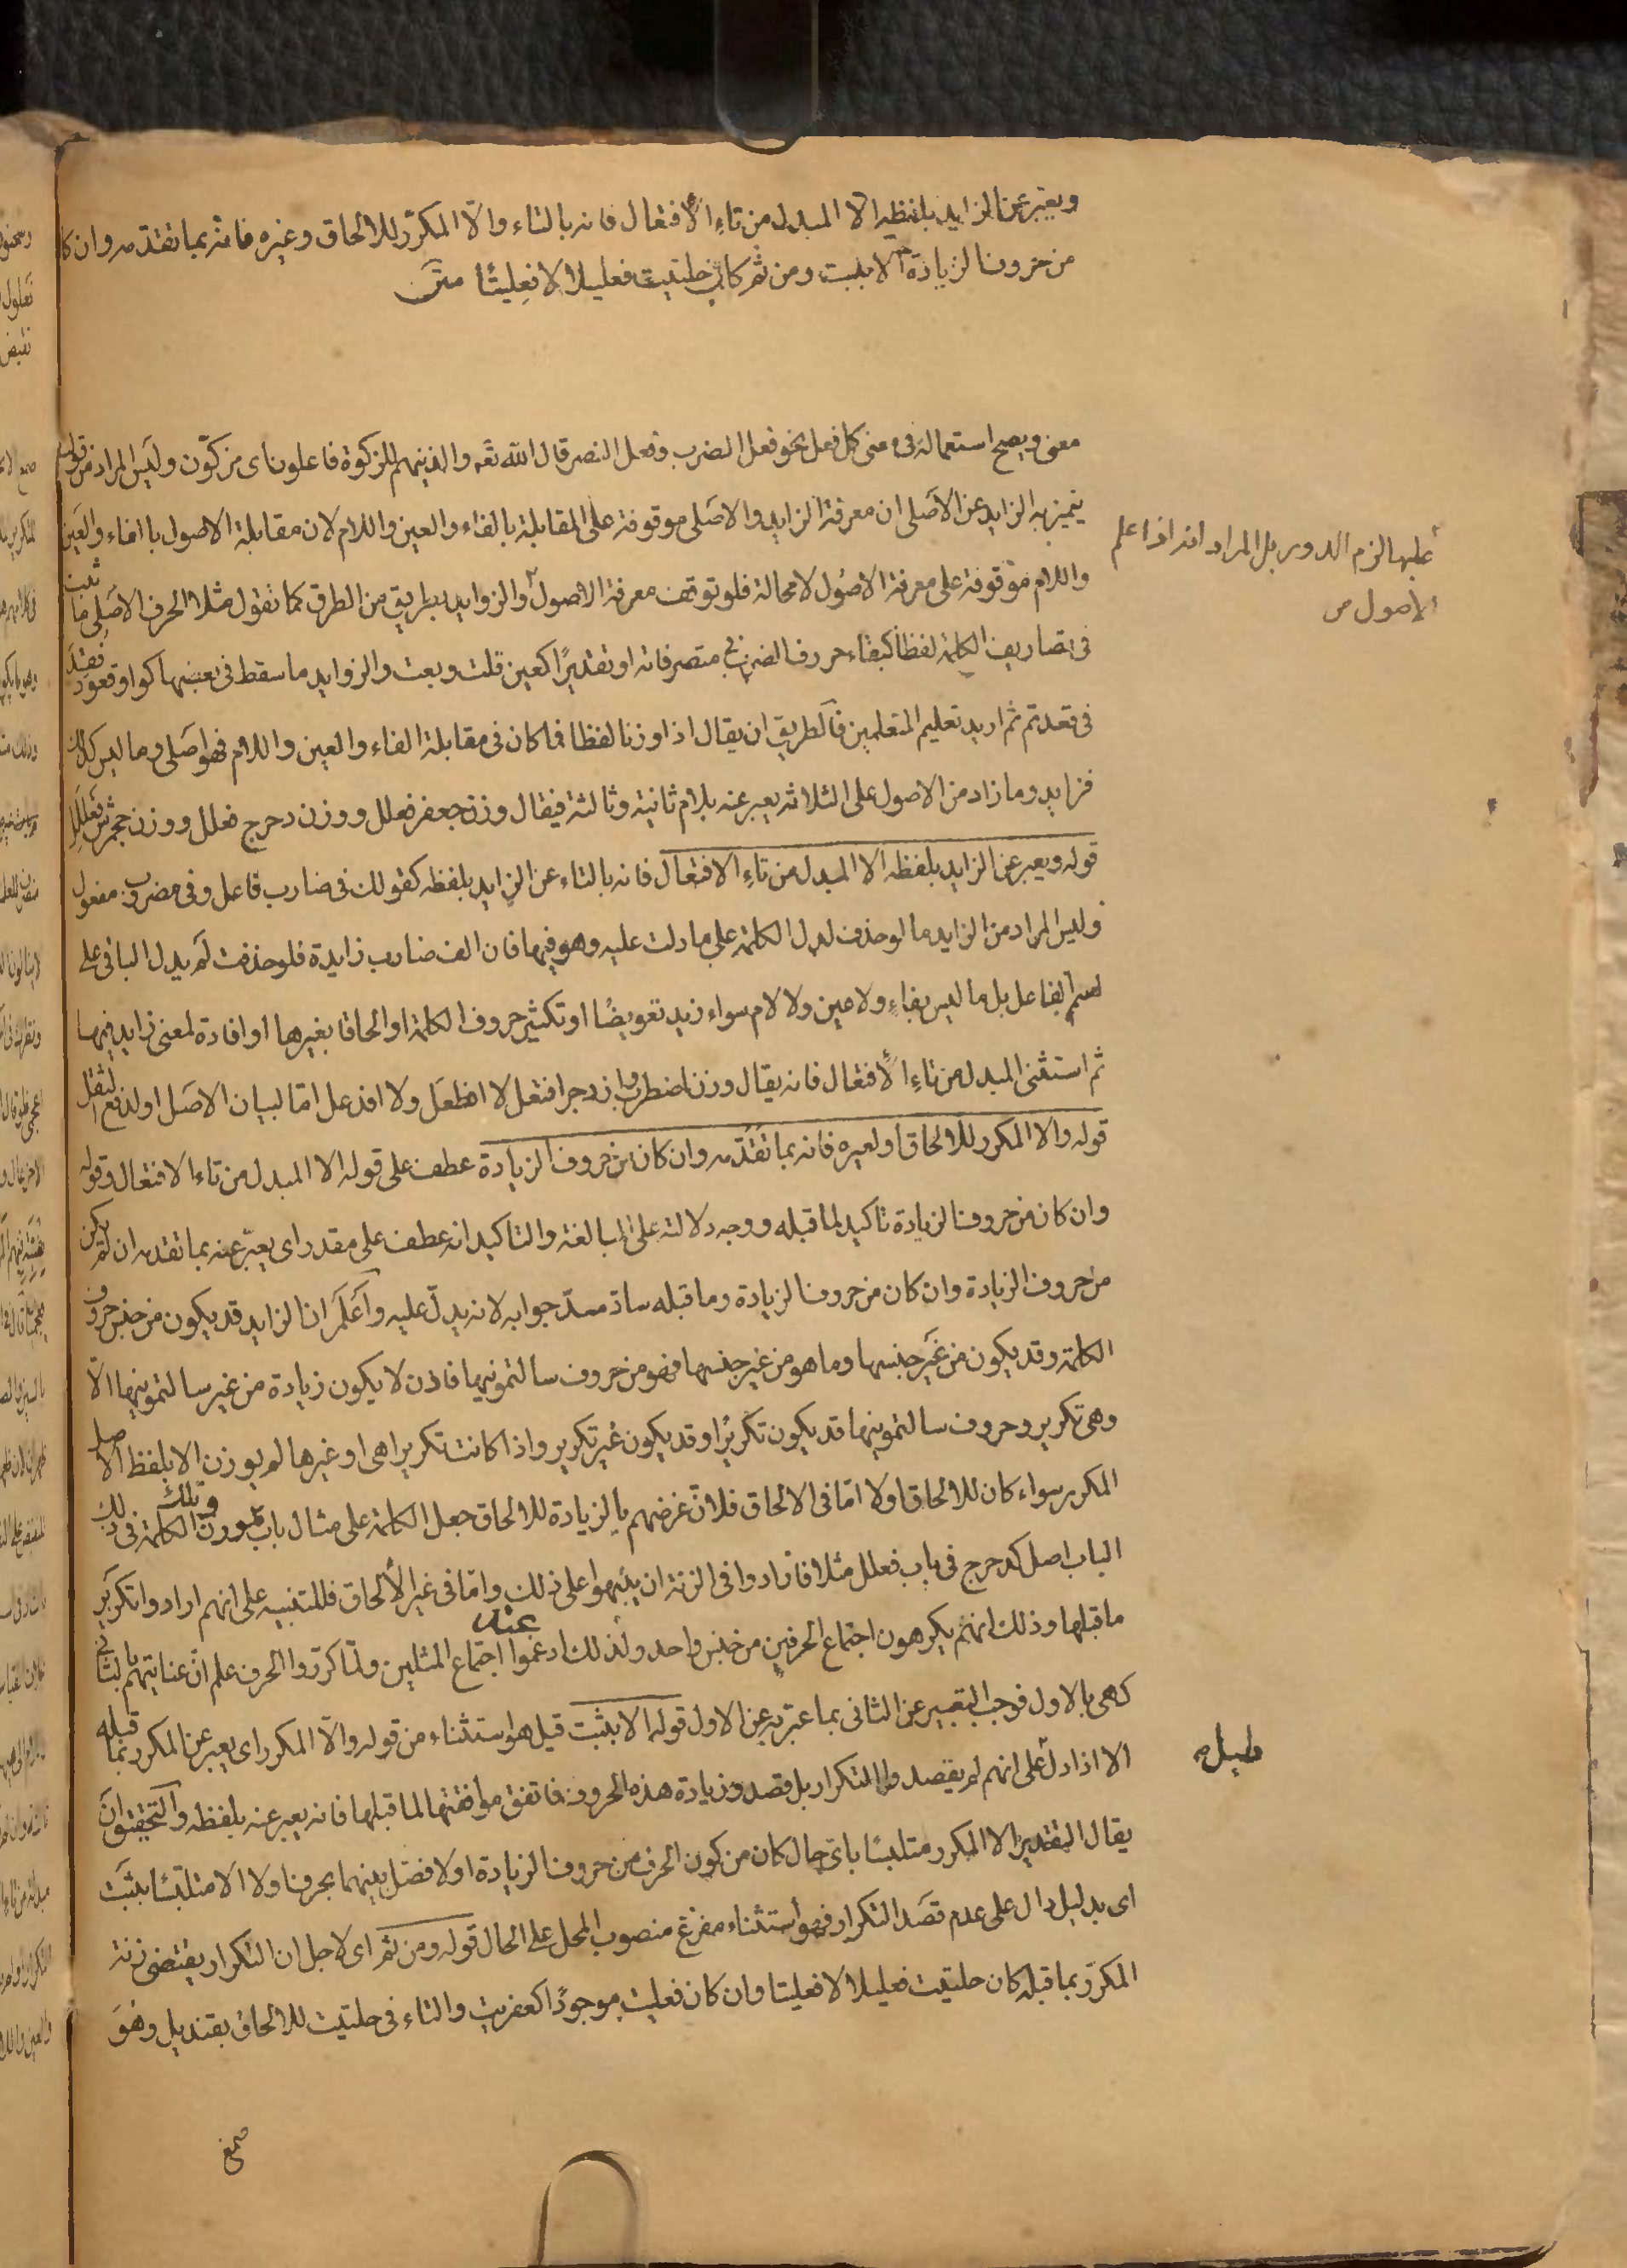 ويعبر عن الزايد بلفظه الا المبدل من تاء الافتعال فانه بالتاء والا المكرر للالحاق وغيره فانه بما تقدمه وان كا
من حروف الزيادة الا بثبت ومن ثم كان حلتيت فعليلا لا فعليتا متن
معنى ويصح استعماله في معنى كل فعل نحو فعل الضرب وفعل النصر قال الله تعه والذينهم للزكوة فاعلون اى مزكون وليس المراد من قوله
يتميز به الزايد عن الاصلى ان معرفة الزايد والاصلى موقوفة على المقابلة بالفاء والعين واللام لان مقابلة الاصول بالفاء والعين
واللام موقوفة على معرفة الاصول لا محالة فلو توقف معرفة الاصول والزوايد بطريق من الطرق كما تقول مثلا الحرف الاصلى ما ثبت
فى تصاريف الكلمة لفظا كبقاء حروف الضرب فى متصرفاته او تقديرا كعين قلت وبعت والزوايد ما سقط فى بعضها كواو قعود فقيد
فى قعد ثم اريد تعليم المتعلمين فالطريق ان يقال اذا وزنا لفظا فما كان فى مقابلة الفاء والعين واللام فهو اصلى وما ليس كذلك
فزايد وما زاد من الاصول على الثلاثة يعبر عنه بلام ثانية وثالثة فيقال وزن جعفر فعلل ووزن دحرج فعلل ووزن جحمرش فعللل
قوله ويعبر عن الزايد بلفظه الا المبدل من تاء الافتعال فانه بالتاء عن الزايد بلفظه كقولك فى ضارب فاعل وفى مضروب مفعول
وليس المراد من الزايد ما لو حذف لدل الكلمة على ما دلت عليه وهو فيها فان الف ضارب زايدة فلو حذفت لم يدل الباقى على
اسم الفاعل بل ما ليس بفاء ولا عين ولا لام سواء زيد تعويضا او تكثير حروف الكلمة او الحاقا بغيرها او افادة لمعنى زايد فيها
ثم استثنى المبدل من تاء الافتعال فانه يقال وزن اضطرب وازدجر افتعل لا افطعل ولا افدعل اما لبيان الاصل او لدفع الثقل
قوله والا المكرر للالحاق او لغيره فانه بما تقدمه وان كان من حروف الزيادة عطف على قوله الا المبدل من تاء الافتعال وقوله
وان كان من حروف الزيادة تاكيد لما قبله ووجه دلالته على المبالغة والتاكيد انه عطف على مقدر اى يعبر عنه بما تقدمه ان لم يكن
من حروف الزيادة وان كان من حروف الزيادة وما قبله ساد مسد جوابه لانه يدل عليه واعلم ان الزايد قد يكون من جنس حروف
الكلمة وقد يكون من غير جنسها وما هو من غير جنسها فهو من حروف سالتمونيها فاذن لا يكون زيادة من غير سالتمونيها الا
وهى تكرير وحروف سالتمونيها قد يكون تكريرا وقد يكون غير تكرير واذا كانت تكريرا هى او غيرها لم يوزن الا بلفظ الاصل
المكرر سواء كان للالحاق اولا اما فى الالحاق فلان غرضهم بالزيادة للالحاق جعل الكلمة على مثال باب وتلك الكلمة فى ذلك
الباب اصل كدحرج فى باب فعلل مثلا فارادوا فى الزنة ان ينبهوا على ذلك واما فى غير الالحاق فللتنبيه على انهم ارادوا تكرير
ما قبلها وذلك انهم يكرهون اجتماع الحرفين من جنس واحد ولذلك ادغموا عند اجتماع المثلين ولما كرروا الحرف علم ان عنايتهم بالثانى
كهى بالاول فوجب التعبير عن الثانى بما عبر به عن الاول قوله الا بثبت قيل هو استثناء من قوله والا المكرر اى يعبر عن المكرر بما قبله
الا اذا دل على انهم لم يقصدوا التكرار بل قصدوا زيادة هذه الحروف فاتفق موافقتها لما قبلها فانه يعبر عنه بلفظه والتحقيق ان
يقال التقدير الا المكرر متلبسا باى حال كان من كون الحرف من حروف الزيادة او لا فصل بينهما بحرف اولا الا متلبسا بثبت
اى بدليل دال على عدم قصد التكرار فهو استثناء مفرغ منصوب المحل على الحال قوله ومن ثم اى لاجل ان التكرار يقتضى زنة
المكرر بما قبله كان حلتيت فعليلا لا فعليتا وان كان فعليت موجودا كعفريت والتاء فى حلتيت للالحاق بقنديل وهو
عليها لزم الدور بل المراد انه اذا علم
الاصول ص
صمغ